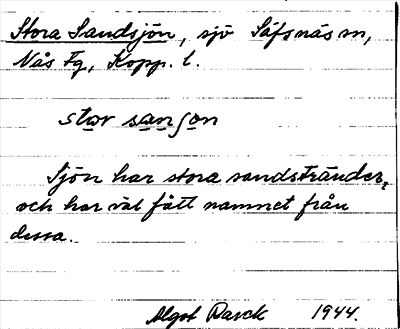 Stora Sandsjön, sjö Säfsnäs sn,
Nås Fg, Kopp. l.
stor sanʃon
Sjön har stora sandstränder,
och har väl fått namnet från
dessa.
Algot Rasck 1944.